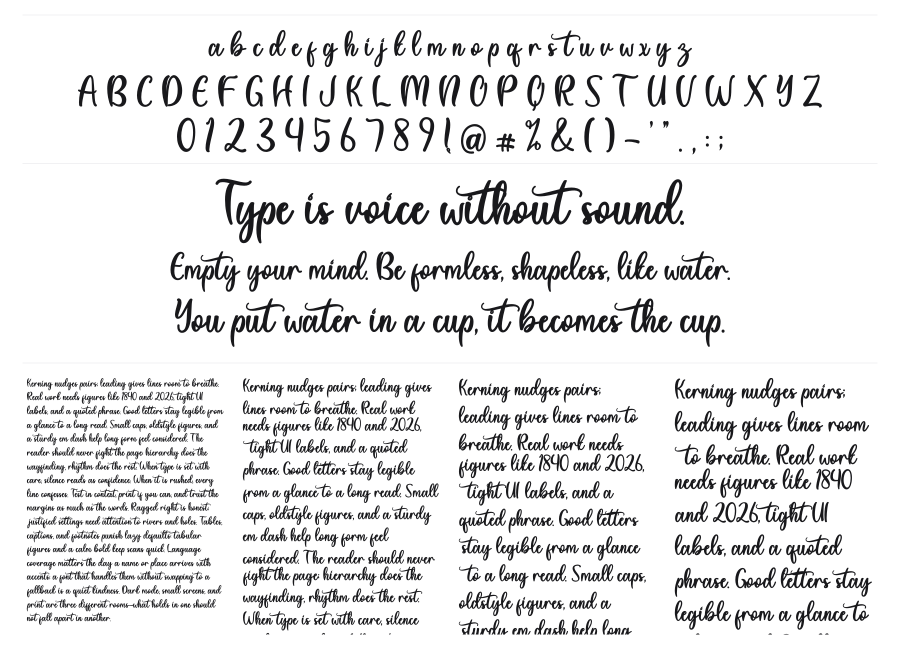 a b c d e f g h i j k l m n o p q r s t u v w x y z
A B C D E F G H I J K L M N O P Q R S T U V W X Y Z
0 1 2 3 4 5 6 7 8 9 ! @ # % & ( ) - ' " . , : ;
Type is voice without sound.
Empty your mind. Be formless, shapeless, like water.
You put water in a cup, it becomes the cup.
Kerning nudges pairs; leading gives lines room to breathe.
Real work needs figures like 1840 and 2026, tight UI
labels, and a quoted phrase. Good letters stay legible from
a glance to a long read. Small caps, oldstyle figures, and
a sturdy em dash help long form feel considered. The
reader should never fight the page hierarchy does the
wayfinding, rhythm does the rest. When type is set with
care, silence reads as confidence. When it is rushed, every
line confesses. Test in context, print if you can, and trust the
margins as much as the words. Ragged right is honest
justified settings need attention to rivers and holes. Tables,
captions, and footnotes punish lazy defaults tabular
figures and a calm bold keep scans quick. Language
coverage matters the day a name or place arrives with
accents a font that handles them without swapping to a
fallback is a quiet kindness. Dark mode, small screens, and
print are three different rooms—what holds in one should
not fall apart in another.
Kerning nudges pairs; leading gives
lines room to breathe. Real work
needs figures like 1840 and 2026,
tight UI labels, and a quoted
phrase. Good letters stay legible
from a glance to a long read. Small
caps, oldstyle figures, and a sturdy
em dash help long form feel
considered. The reader should never
fight the page hierarchy does the
wayfinding, rhythm does the rest.
When type is set with care, silence
Kerning nudges pairs;
leading gives lines room to
breathe. Real work needs
figures like 1840 and 2026,
tight UI labels, and a
quoted phrase. Good letters
stay legible from a glance
to a long read. Small caps,
oldstyle figures, and a
sturdy em dash help long
Kerning nudges pairs;
leading gives lines room
to breathe. Real work
needs figures like 1840
and 2026, tight UI
labels, and a quoted
phrase. Good letters stay
legible from a glance to